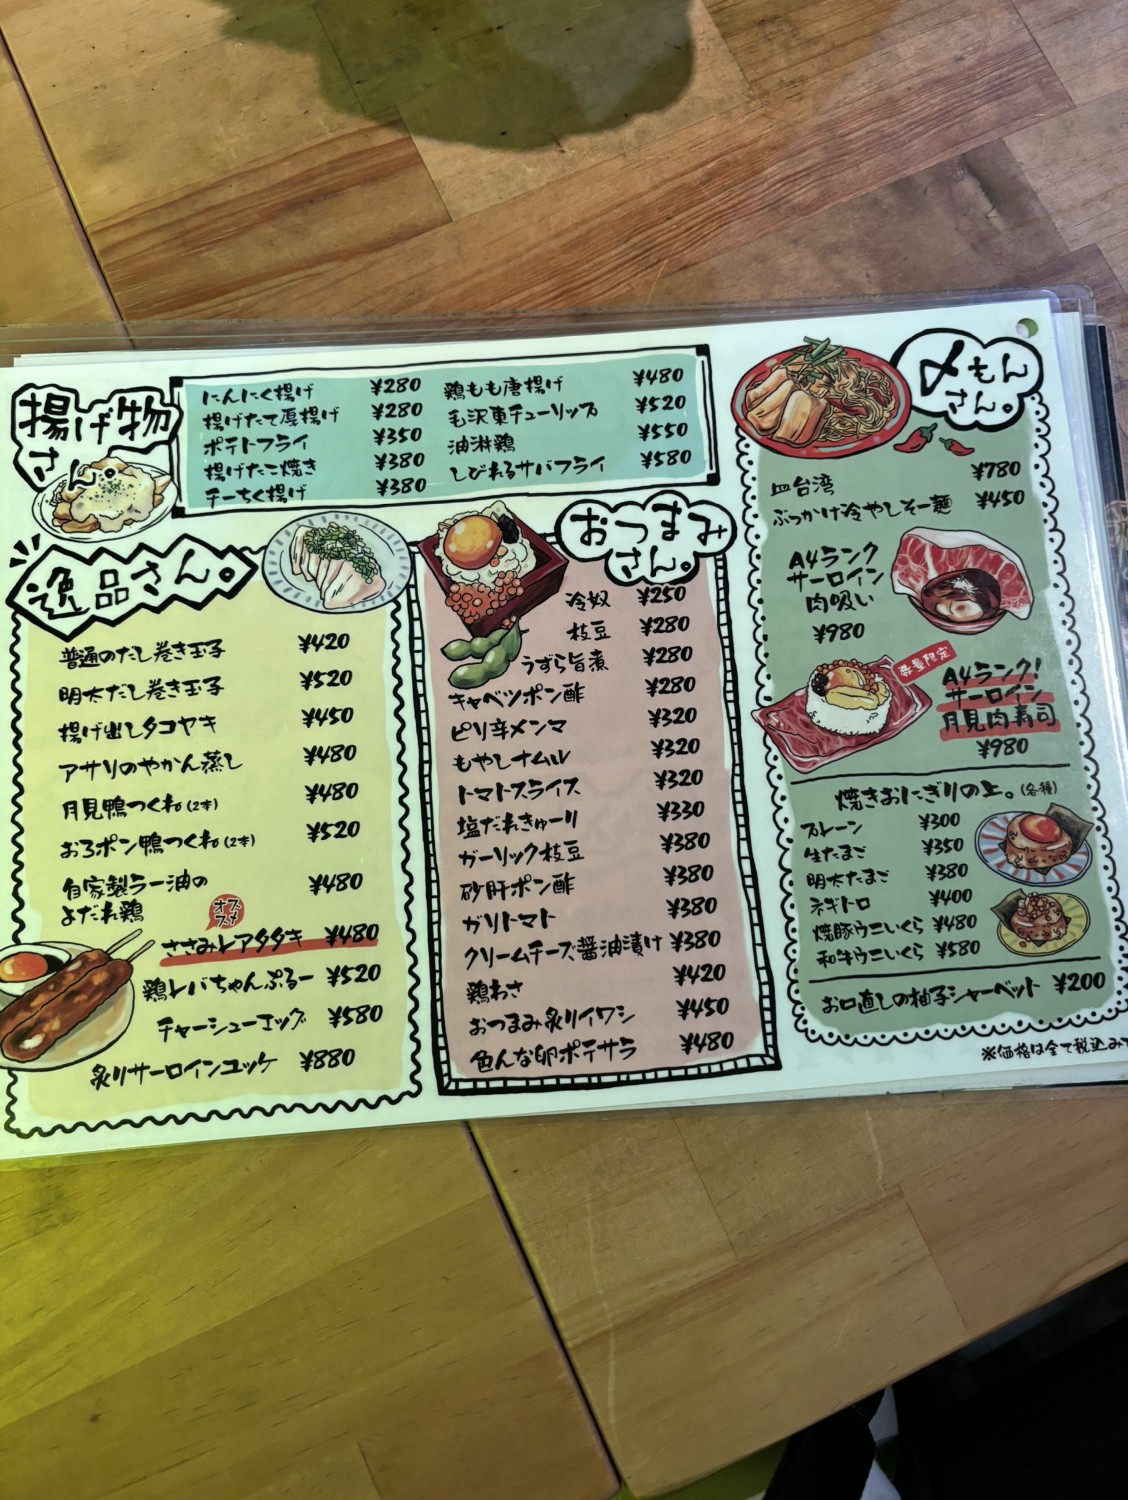 揚げ物
さん。
にんにく揚げ ¥280
揚げたて厚揚げ ¥280
ポテトフライ ¥350
揚げたこ焼き ¥380
チーちく揚げ ¥380
鶏もも唐揚げ ¥480
毛沢東チューリップ ¥520
油淋鶏 ¥550
しびれるサバフライ ¥580
逸品さん。
普通のだし巻き玉子 ¥420
明太だし巻き玉子 ¥520
揚げ出しタコヤキ ¥450
アサリのやかん蒸し ¥480
月見鴨つくね(2本) ¥480
おろポン鴨つくね(2本) ¥520
自家製ラー油の
よだれ鶏 ¥480
オススメ
ささみレアタタキ ¥480
鶏レバちゃんぷるー ¥520
チャーシューエッグ ¥580
炙りサーロインユッケ ¥880
おつまみ
さん。
冷奴 ¥250
枝豆 ¥280
うずら旨煮 ¥280
キャベツポン酢 ¥280
ピリ辛メンマ ¥320
もやしナムル ¥320
トマトスライス ¥320
塩だれきゅーり ¥330
ガーリック枝豆 ¥380
砂肝ポン酢 ¥380
ガリトマト ¥380
クリームチーズ醤油漬け ¥380
鶏わさ ¥420
おつまみ炙りイワシ ¥450
色んな卵ポテサラ ¥480
〆もん
さん。
皿台湾 ¥780
ぶっかけ冷やしそー麺 ¥450
A4ランク
サーロイン
肉吸い
¥980
数量限定
A4ランク!
サーロイン
月見肉寿司
¥980
焼きおにぎりの上。(各種)
プレーン ¥300
生たまご ¥350
明太たまご ¥380
ネギトロ ¥400
焼豚ウニいくら ¥480
和牛ウニいくら ¥580
お口直しの柚子シャーベット ¥200
※価格は全て税込みで